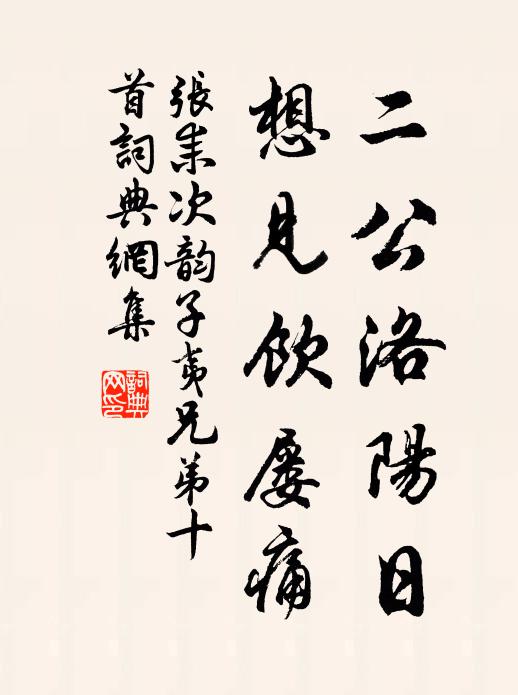 二公洛陽日
想見飲屡痛
張耒次韵子夷兄弟十
首詞典網集
詞典
网印